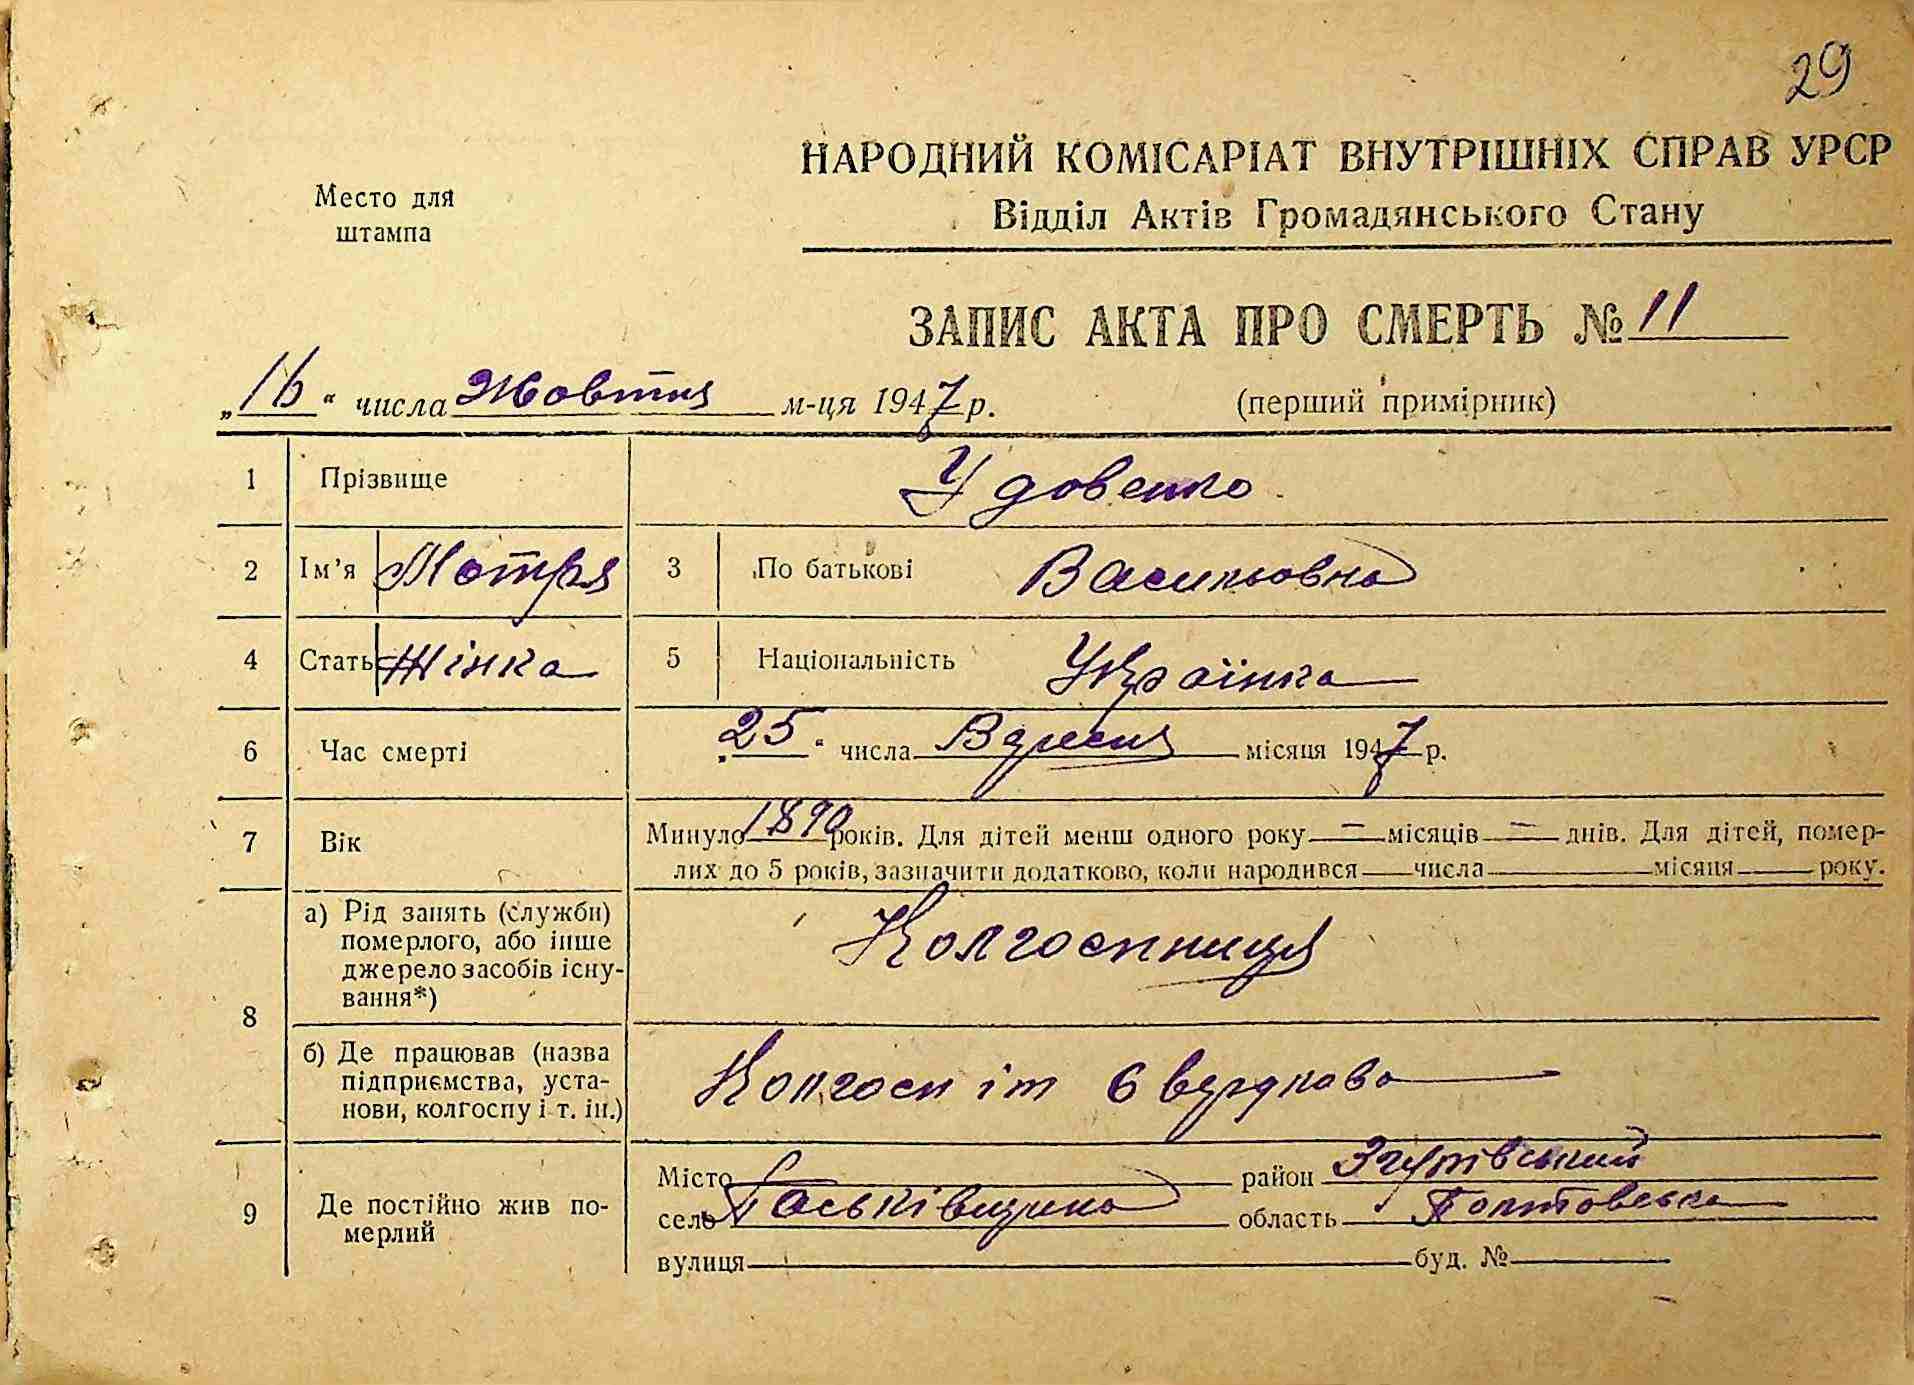 29
НАРОДНИЙ КОМІСАРІАТ ВНУТРІШНІХ СПРАВ УРСР
Место для
штампа
Відділ Актів Громадянського Стану
ЗАПИС АКТА ПРО СМЕРТЬ № 11
„16“ числа Жовтня м-ця 1947 р.
(перший примірник)
1 Прізвище Удовенко
2 Ім'я Мотря 3 По батькові Васильовна
4 Стать Жінка 5 Національність Українка
6 Час смерті „25“ числа Вересня місяця 1947 р.
7 Вік Минуло 1890 років. Для дітей менш одного року — місяців — днів. Для дітей, помер-
лих до 5 років, зазначити додатково, коли народився числа місяця року.
8 а) Рід занять (служби)
померлого, або інше
джерело засобів існу-
вання*)
Колгоспниця
б) Де працював (назва
підприємства, уста-
нови, колгоспу і т. ін.)
Колгосп ім
9 Де постійно жив по-
мерлий
Місто район Згурівський
село Паськівщина область Полтовська
вулиця буд. №